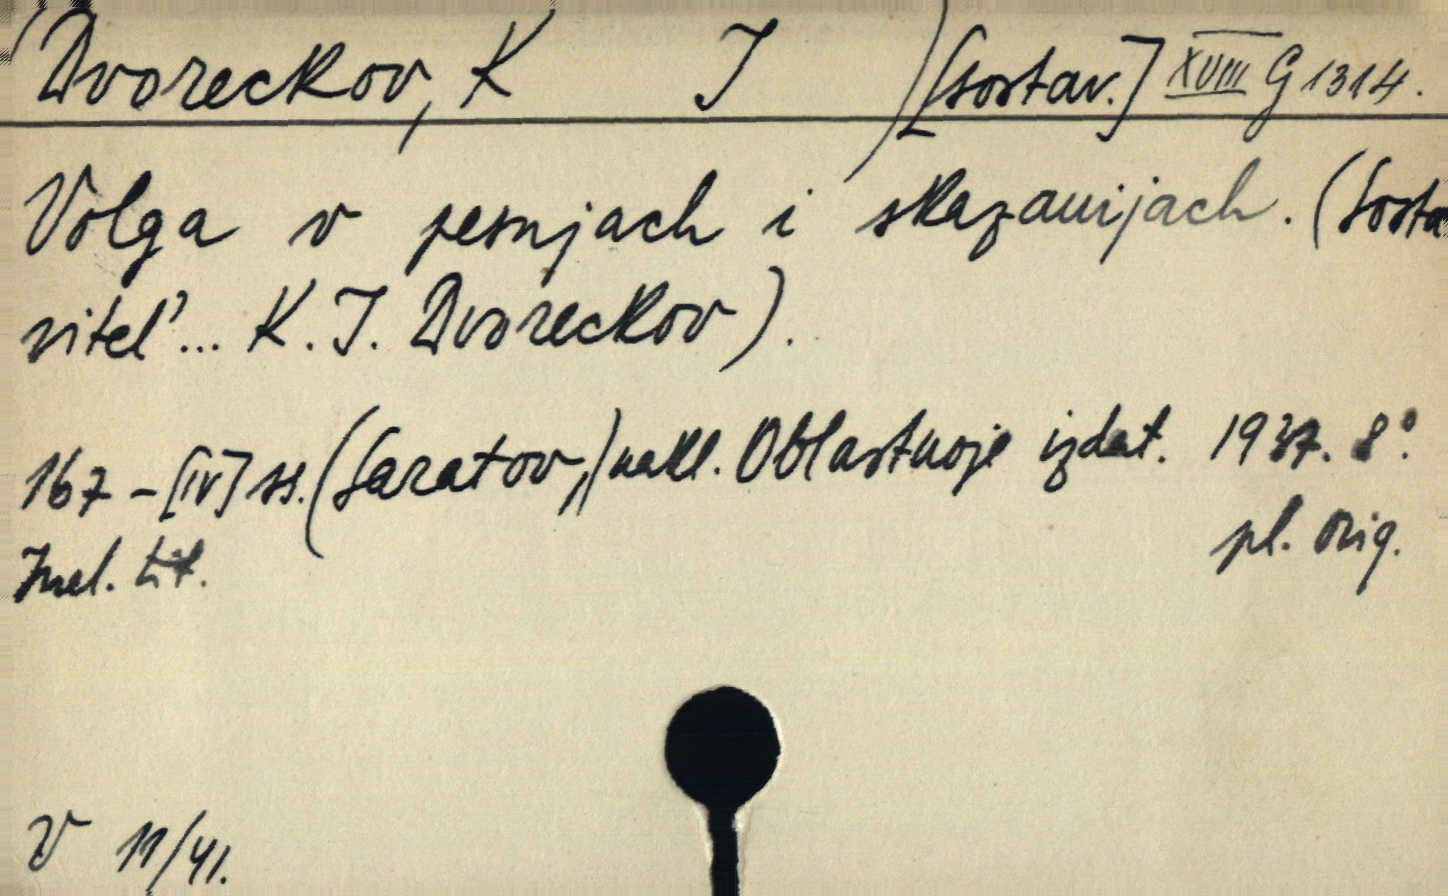 (Dvoreckov, K J ) [sostav.] XVIII G 1314.
Volga v pesnjach i skazanijach. (Sosta
vitel'... K. J. Dvoreckov).
167 - [IV] ss. (Saratov,) nakl. Oblastnoje izdat. 1937. 8°.
Juel. tit. pl. orig.
V 11/41.